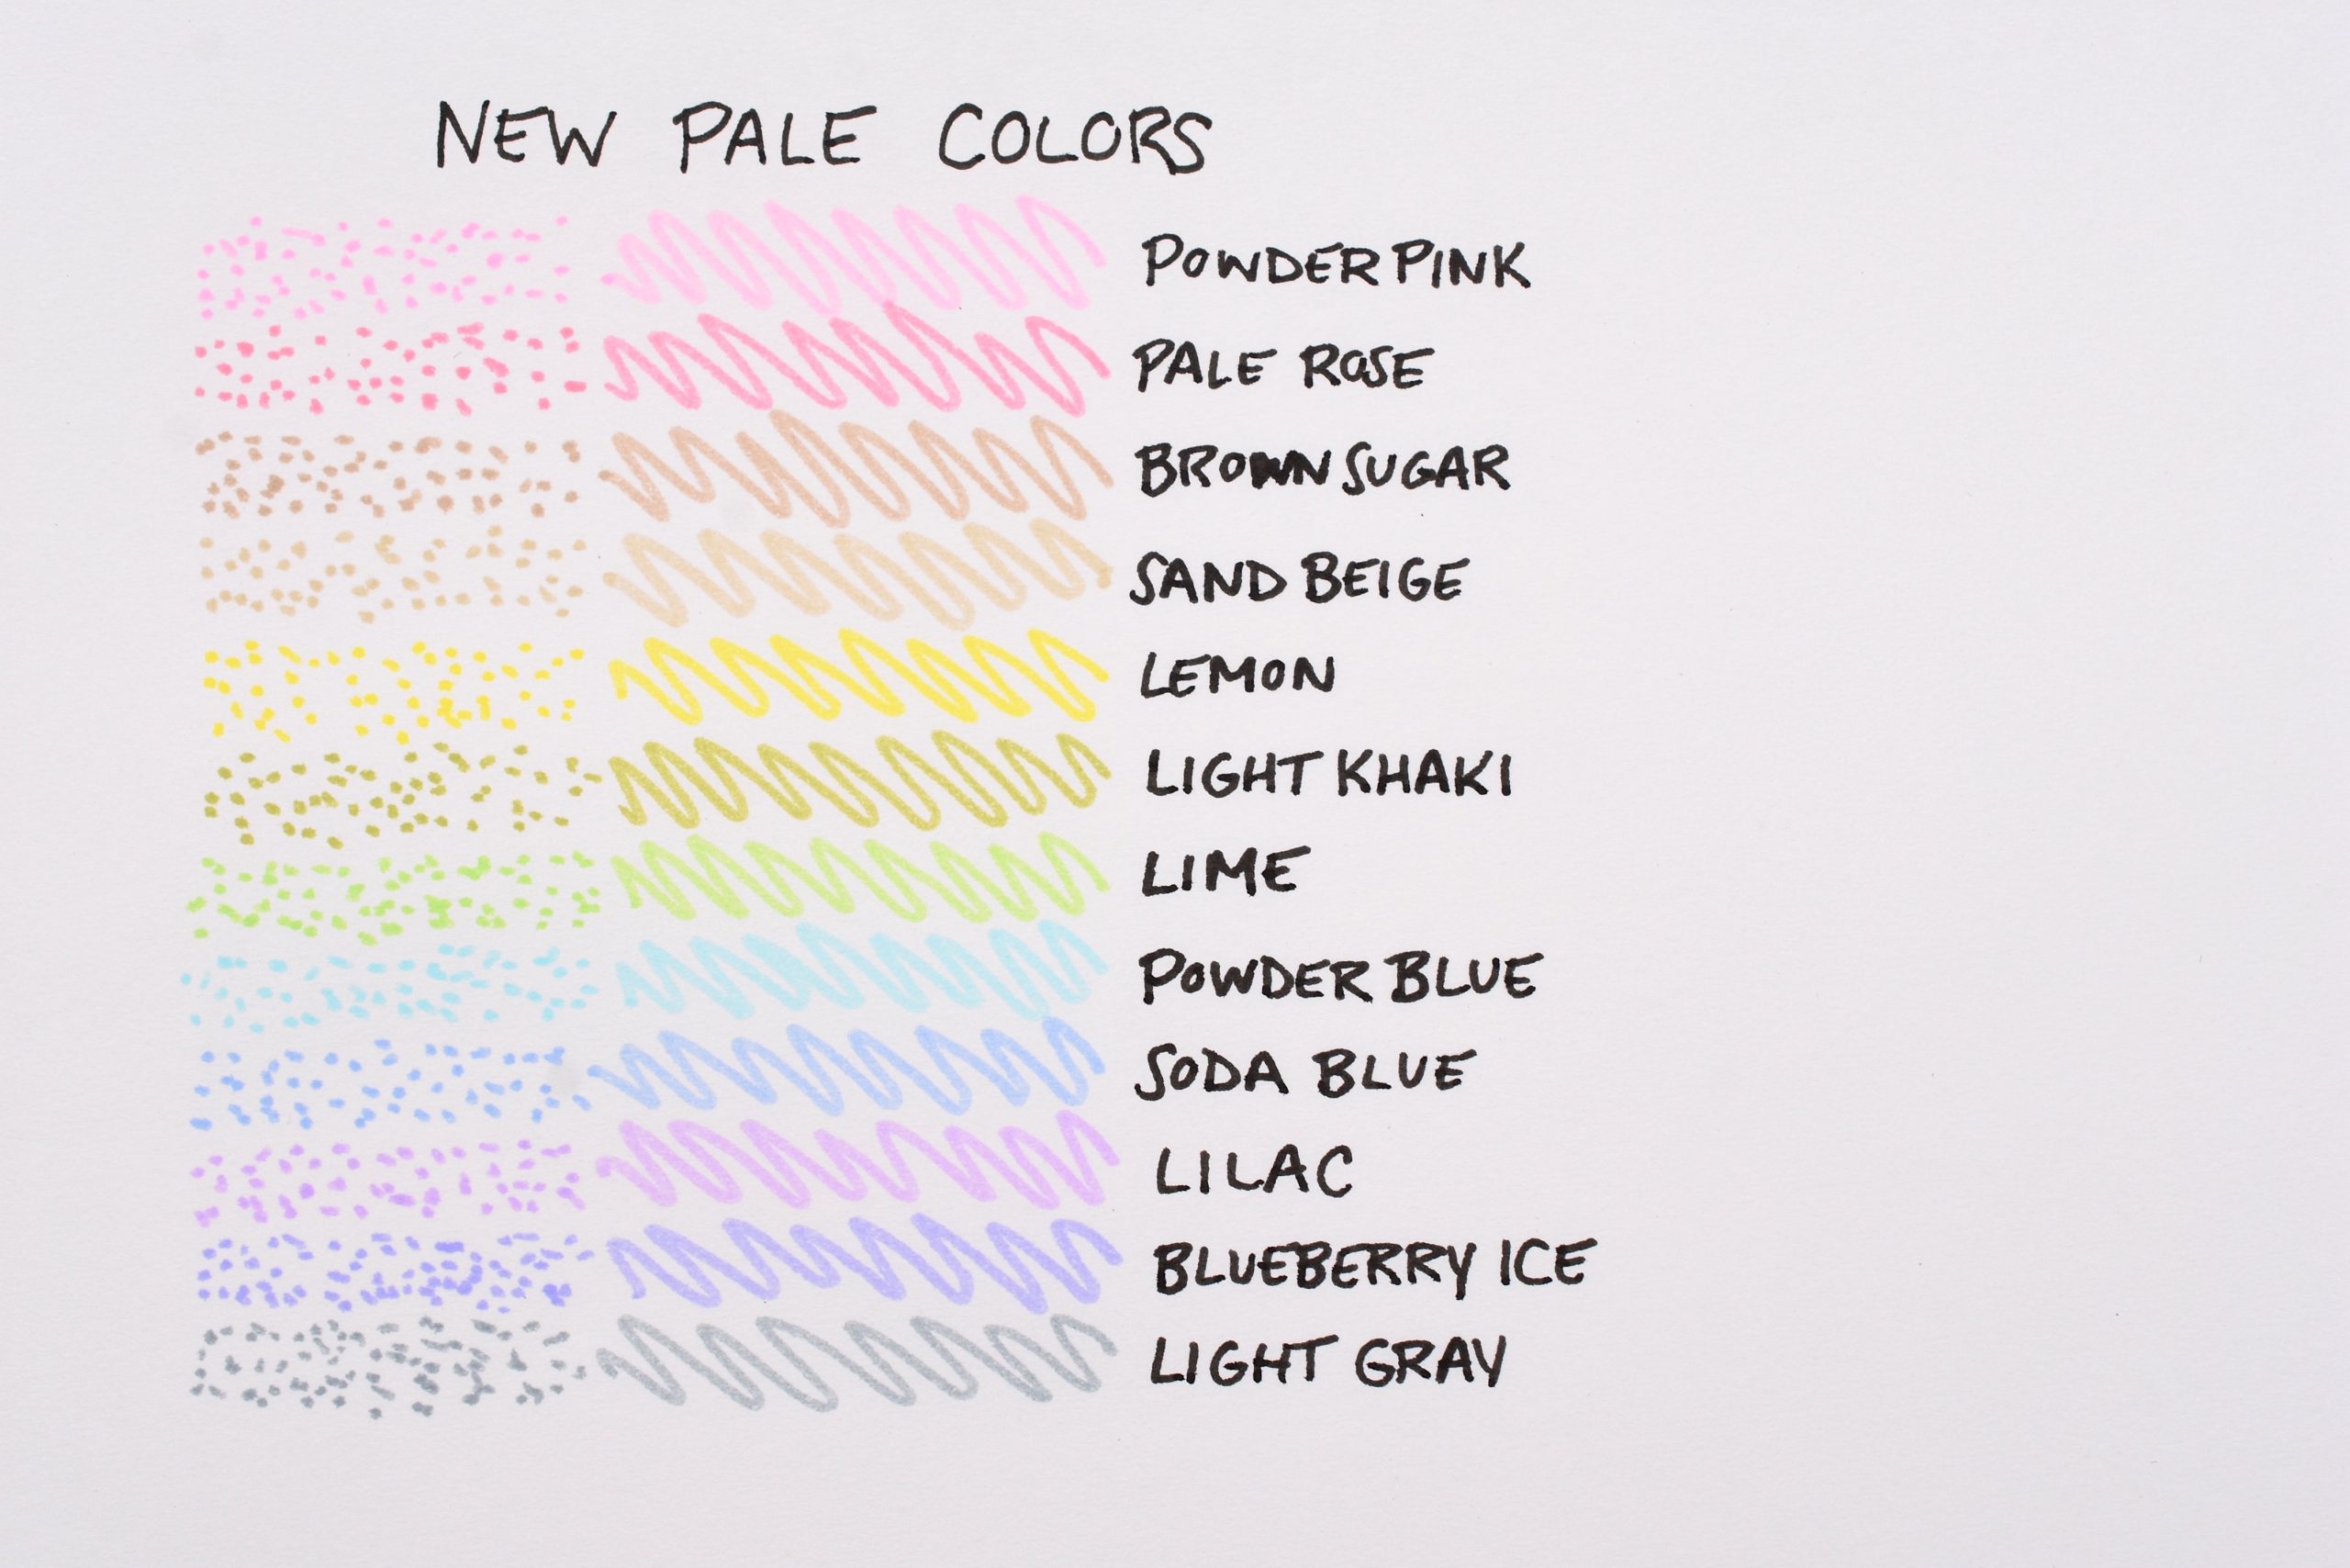 NEW PALE COLORS
POWDER PINK
PALE ROSE
BROWN SUGAR
SAND BEIGE
LEMON
LIGHT KHAKI
LIME
POWDER BLUE
SODA BLUE
LILAC
BLUEBERRY ICE
LIGHT GRAY